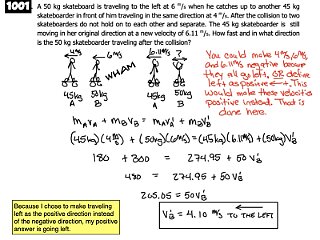 1001
A 50 kg skateboarder is traveling to the left at 6 m/s when he catches up to another 45 kg
skateboarder in front of him traveling in the same direction at 4 m/s. After the collision to two
skateboarders do not hold on to each other and separate. The 45 kg skateboarder is still
moving in his original direction at a new velocity of 6.11 m/s. How fast and in what direction
is the 50 kg skateboarder traveling after the collision?
4 m/s 6 m/s 6.11 m/s ?
WHAM
45kg 50kg 45kg 50kg
A B A B
You could make 4 m/s, 6 m/s
and 6.11 m/s negative because
they all go left, OR define
left as positive ← +. This
would make these velocities
positive instead. That is
done here.
mAVA + mBVB = mAV'A + mBV'B
(45kg)(4 m/s) + (50kg)(6 m/s) = (45kg)(6.11 m/s) + (50kg)V'B
180 + 300 = 274.95 + 50 V'B
480 = 274.95 + 50 V'B
205.05 = 50V'B
V'B = 4.10 m/s TO THE LEFT
Because I chose to make traveling
left as the positive direction instead
of the negative direction, my positive
answer is going left.